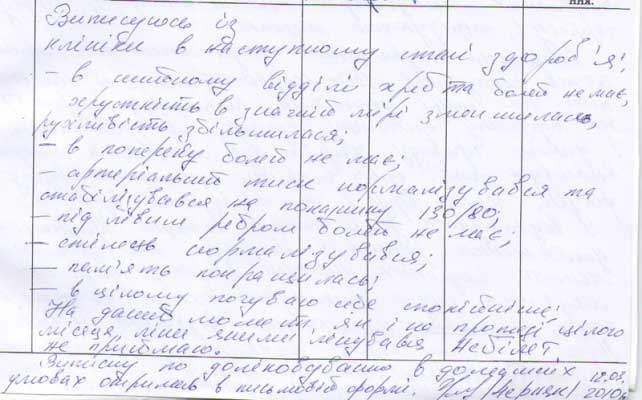 ння.
Виписуюсь із
клініки в наступному стані здоров'я:
– в шийному відділі хребта болю немає,
хрусткість в значній мірі зменшилась,
рухливість збільшилася;
– в попереку болю не має;
– артеріальний тиск нормалізувався та
стабілізувався на показнику 130/80;
– під лівим ребром болю не має;
– стілець нормалізувався;
– пам'ять покращилась;
– в цілому почуваю себе спокійніше;
На даний момент, як і на протязі цілого
місяця, ліки якими лікувався не
приймаю.
Виписку по доліковуванню в домашніх 12.03.
умовах отримав в письмовій формі. 2010